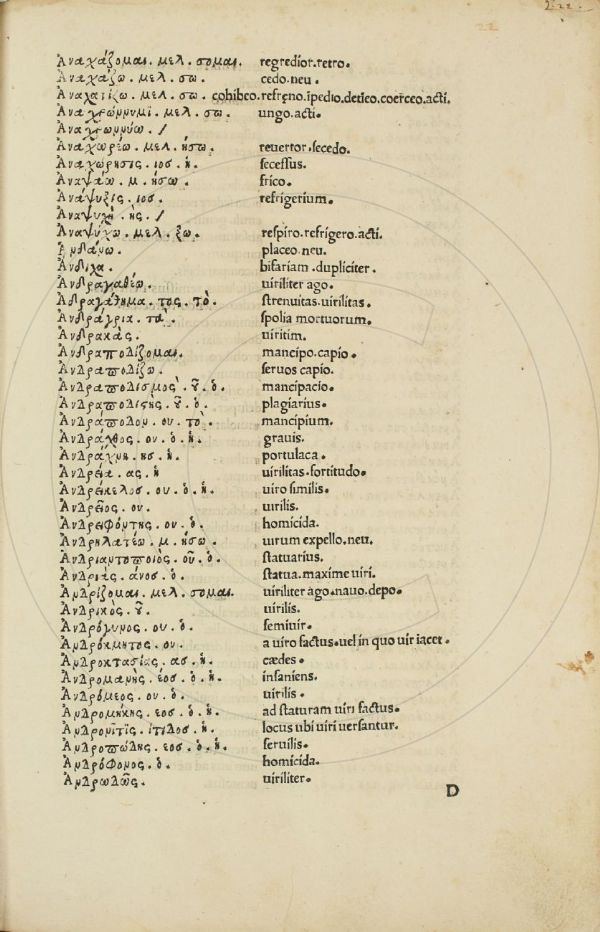 22
Ἀναχάζομαι. μελ. σομαι. regredior.retro.
Ἀναχάζω. μελ. σω. cedo.neu.
Ἀναχατίζω. μελ. σω. cohibeo.refreno.īpedio.detieo.coerceo.acti.
Ἀναχρώννυμι. μελ. σω. ungo.acti.
Ἀναχρωννύω. /
Ἀναχωρέω. μελ. ήσω. reuertor.secedo.
Ἀναχώρησις. ιοσ. ἡ. secessus.
Ἀναψάω. μ. ήσω. frico.
Ἀνάψυξις. ιοσ. refrigerium.
Ἀναψυχὴ. ῆς. /
Ἀναψύχω. μελ. ξω. respiro.refrigero.acti.
Ἁνδάνω. placeo.neu.
Ἄνδιχα. bifariam.dupliciter.
Ἀνδραγαθέω. uiriliter ago.
Ἀδραγάθημα. τος. τὸ. strenuitas.uirilitas.
Ἀνδράγρια. τὰ. spolia mortuorum.
Ἀνδρακὰς. uiritim.
Ἀνδραποδίζομαι. mancipo.capio.
Ἀνδραποδίζω. seruos capio.
Ἀνδραποδισμὸς. οῦ. ὁ. mancipacio.
Ἀνδραποδιστὴς. οῦ. ὁ. plagiarius.
Ἀνδράποδον. ου. τὸ. mancipium.
Ἀνδράχθος. ου. ὁ. ἡ. grauis.
Ἀνδράχνη. ησ. ἡ. portulaca.
Ἀνδρεία. ας. ἡ uirilitas.fortitudo.
Ἀνδρείκελοσ. ου. ὁ. ἡ. uiro similis.
Ἀνδρεῖος. ου. uirilis.
Ἀνδρειφόντης. ου. ὁ. homicida.
Ἀνδρηλατέω. μ. ήσω. uirum expello.neu.
Ἀνδριαντοποιὸς. οῦ. ὁ. statuarius.
Ἀνδριὰς. άνοσ. ὁ. statua.maxime uiri.
Ἀνδρίζομαι. μελ. σομαι. uiriliter ago.nauo.depo.
Ἀνδρικὸς. οῦ. uirilis.
Ἀνδρόγυνος. ου. ὁ. semiuir.
Ἀνδρόκμητος. ου. a uiro factus.uel in quo uir iacet.
Ἀνδροκτασίας. ασ. ἡ. cædes.
Ἀνδρομανὴς. έοσ. ὁ. ἡ. insaniens.
Ἀνδρόμεος. ου. ὁ. uirilis.
Ἀνδρομήκης. εοσ. ὁ. ἡ. ad staturam uiri factus.
Ἀνδρονῖτις. ίτιδοσ. ἡ. locus ubi uiri uersantur.
Ἀνδροπώδης. εοσ. ὁ. ἡ. seruilis.
Ἀνδρόφονος. ὁ. homicida.
Ἀνδρωδῶς. uiriliter.
D